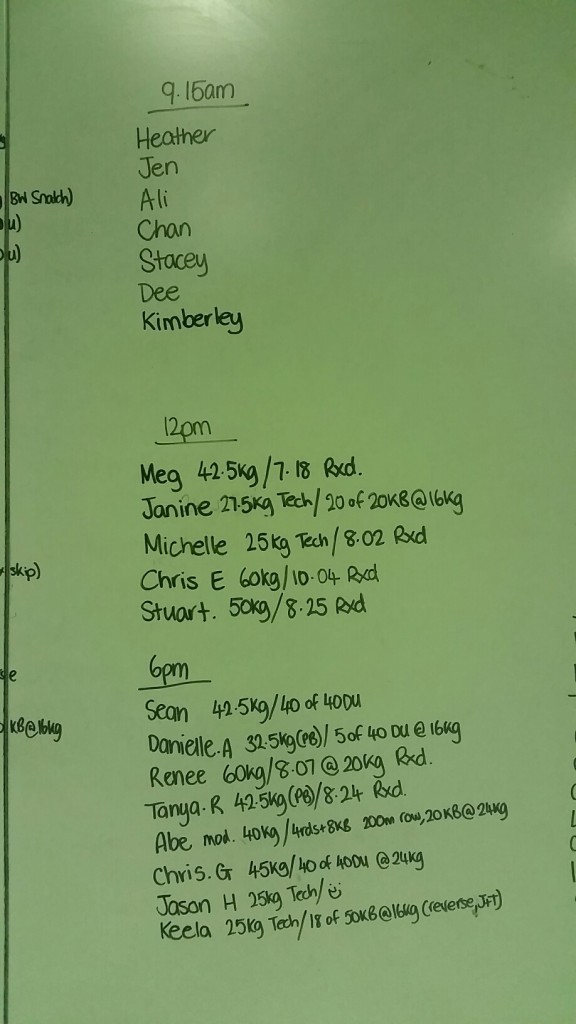 9.15am
Heather
Jen
BW Snatch)
Ali
u)
Chan
u)
Stacey
Dee
Kimberley
12pm
Meg 42.5kg/7.18 Rxd.
Janine 27.5kg Tech/20 of 20KB@16kg
Michelle 25kg Tech/8.02 Rxd
skip)
Chris E 60kg/10.04 Rxd
Stuart. 50kg/8.25 Rxd
6pm
e
Sean 42.5kg/40 of 40DU
KB@16kg
Danielle.A 32.5kg(PB)/5 of 40 DU @ 16kg
Renee 60kg/8.07 @ 20kg Rxd.
Tanya.R 42.5kg(PB)/8.24 Rxd.
Abe mod. 40kg/4rds+8KB 200m row, 20KB@24kg
Chris.G 45kg/40 of 40DU @24kg
Jason H 25kg Tech/
Keela 25kg Tech/18 of 50KB@16kg (reverse, JFT)